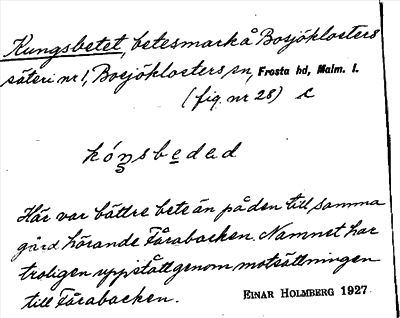 Kungsbetet, betesmark å Bosjöklosters
säteri nr 1, Bosjöklosters sn, Frosta hd, Malm. l.
(fig. nr 28) c
kóṉsbe̲dad
Här var bättre bete än på den till samma
gård hörande Fårabacken. Namnet har
troligen uppstått genom motsättningen
till Fårabacken. EINAR HOLMBERG 1927.